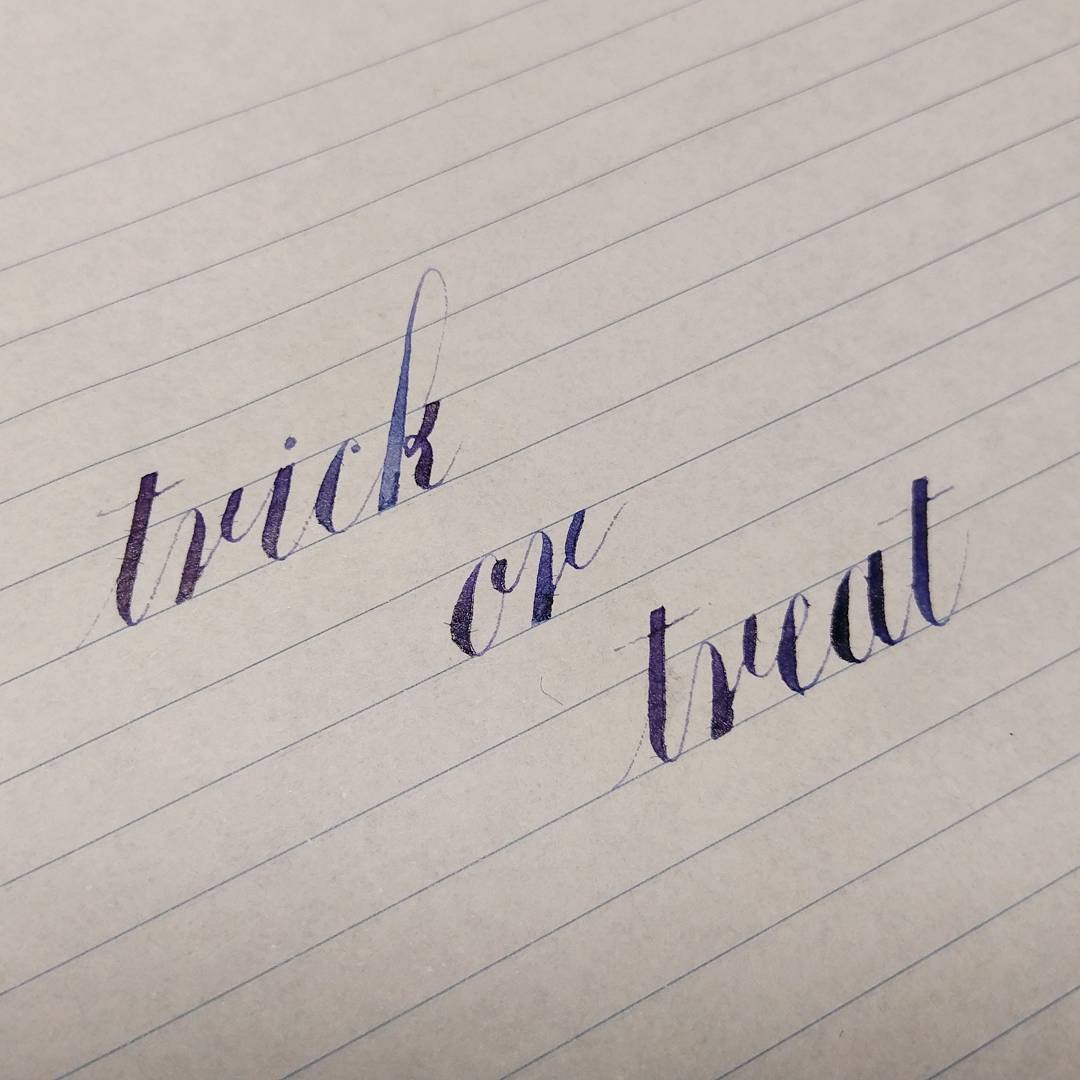 trick
or
treat